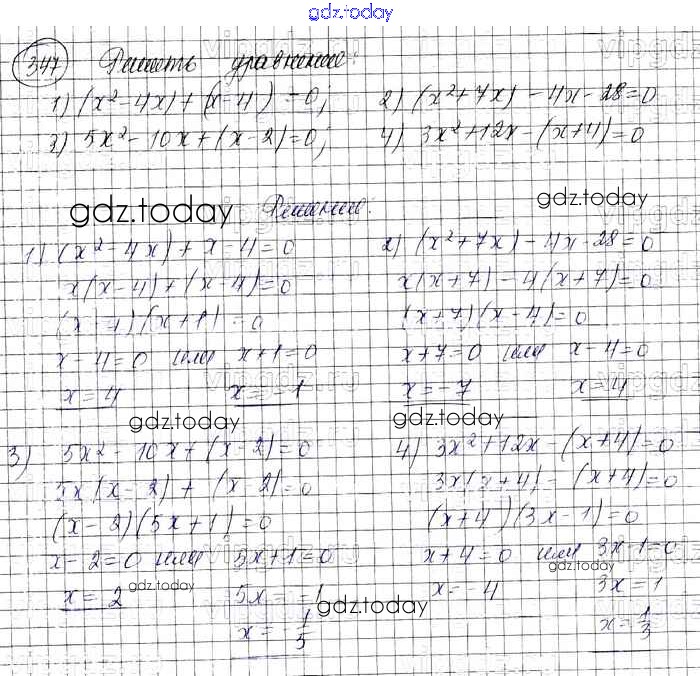 gdz.today
347 Решить уравнение:
1) (x² - 4x) + (x - 4) = 0; 2) (x² + 7x) - 4x - 28 = 0
3) 5x² - 10x + (x - 2) = 0; 4) 3x² + 12x - (x + 4) = 0
gdz.today
gdz.today Решение:
1) (x² - 4x) + x - 4 = 0 2) (x² + 7x) - 4x - 28 = 0
x(x - 4) + (x - 4) = 0 x(x + 7) - 4(x + 7) = 0
(x - 4)(x + 1) = 0 (x + 7)(x - 4) = 0
x - 4 = 0 или x + 1 = 0 x + 7 = 0 или x - 4 = 0
x = 4 x = -1 x = -7 x = 4
gdz.today gdz.today
3) 5x² - 10x + (x - 2) = 0 4) 3x² + 12x - (x + 4) = 0
5x(x - 2) + (x - 2) = 0 3x(x + 4) - (x + 4) = 0
(x - 2)(5x + 1) = 0 (x + 4)(3x - 1) = 0
x - 2 = 0 или 5x + 1 = 0 x + 4 = 0 или 3x - 1 = 0
gdz.today gdz.today
x = 2 5x = -1 x = -4 3x = 1
gdz.today
x = -1/5 x = 1/3